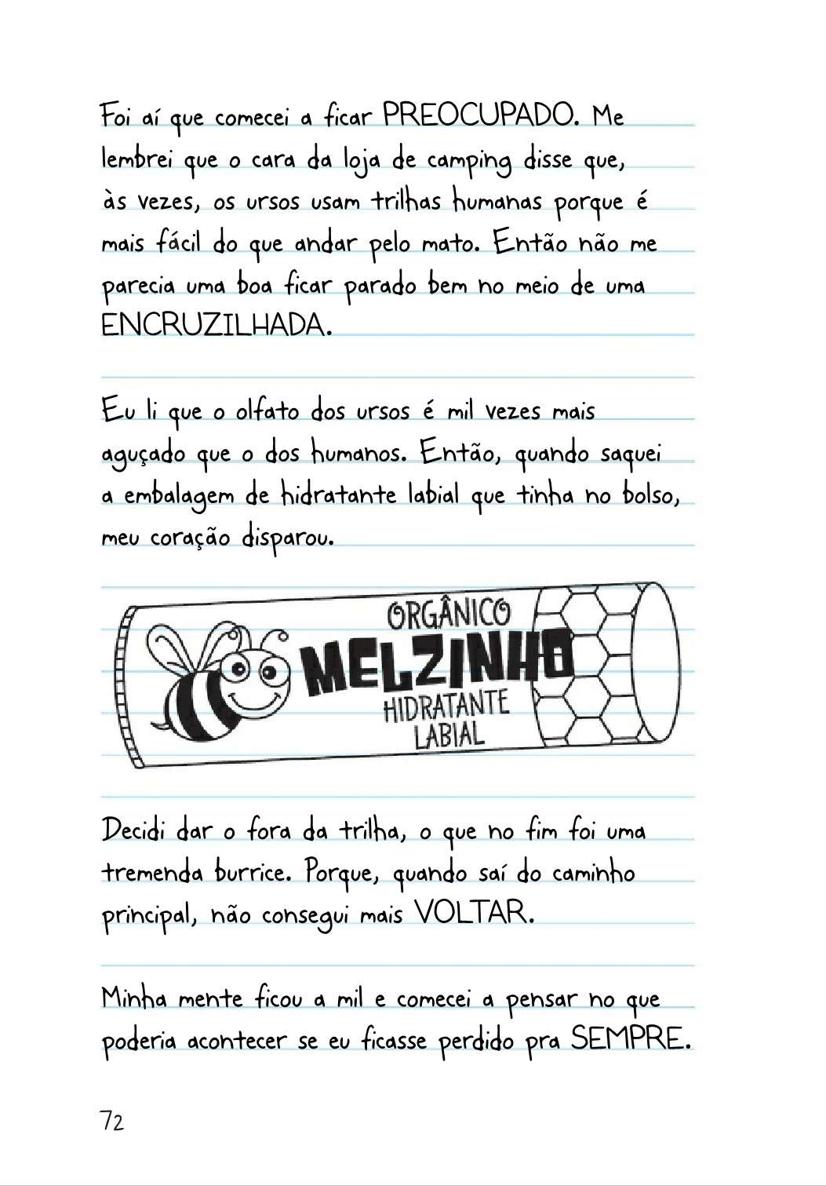 Foi aí que comecei a ficar PREOCUPADO. Me
lembrei que o cara da loja de camping disse que,
às vezes, os ursos usam trilhas humanas porque é
mais fácil do que andar pelo mato. Então não me
parecia uma boa ficar parado bem no meio de uma
ENCRUZILHADA.
Eu li que o olfato dos ursos é mil vezes mais
aguçado que o dos humanos. Então, quando saquei
a embalagem de hidratante labial que tinha no bolso,
meu coração disparou.
ORGÂNICO
MELZINHO
HIDRATANTE
LABIAL
Decidi dar o fora da trilha, o que no fim foi uma
tremenda burrice. Porque, quando saí do caminho
principal, não consegui mais VOLTAR.
Minha mente ficou a mil e comecei a pensar no que
poderia acontecer se eu ficasse perdido pra SEMPRE.
72